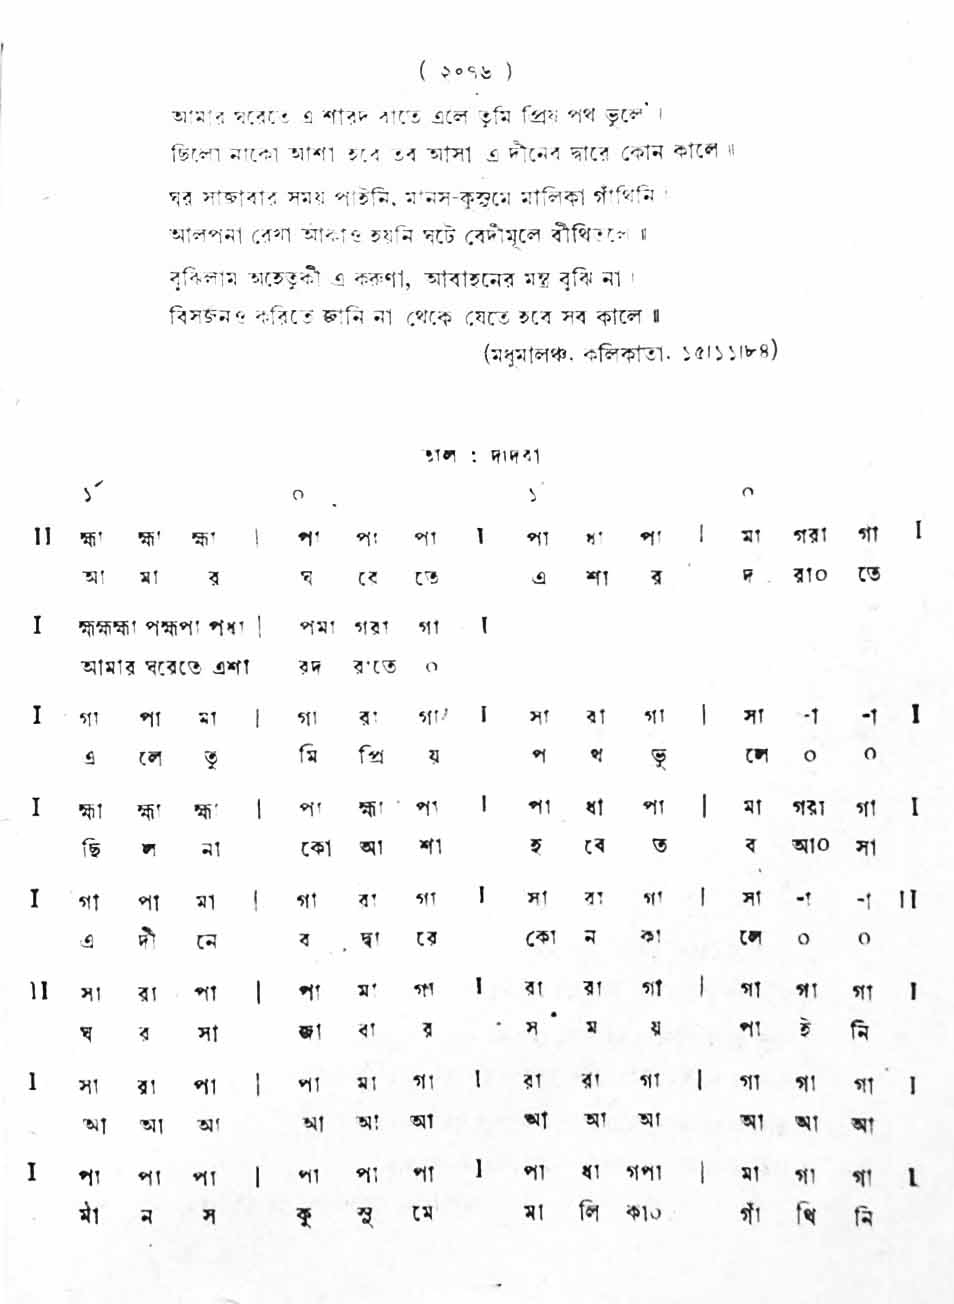 ( ২০৭৬ )
আমার ঘরেতে এ শারদ রাতে এলে তুমি প্রিয় পথ ভুলে ।
ছিলো নাকো আশা হবে তব আসা এ দীনের দ্বারে কোন কালে ॥
ঘর সাজাবার সময় পাইনি, মানস-কুসুমে মালিকা গাঁথিনি ।
আলপনা রেখা আঁকাও হয়নি ঘটে বেদীমূলে বীথিতলে ॥
বুঝিলাম অহেতুকী এ করুণা, আবাহনের মন্ত্র বুঝি না ।
বিসর্জনও করিতে জানি না থেকে যেতে হবে সব কালে ॥
(মধুমালঞ্চ, কলিকাতা, ১৫।১১।৮৪)
তাল : দাদরা
১´ ০ ১ ০
II হ্মা হ্মা হ্মা | পা পা পা I পা ধা পা | মা গরা গা I
আ মা র ঘ রে তে এ শা র দ রা০ তে
I হ্মহ্মহ্মা পহ্মপা পধা | পমা গরা গা I
আমার ঘরেতে এশা রদ রাতে ০
I গা পা মা | গা রা গা I সা রা গা | সা -া -া I
এ লে তু মি প্রি য় প থ ভু লে ০ ০
I হ্মা হ্মা হ্মা | পা হ্মা পা I পা ধা পা | মা গরা গা I
ছি ল না কো আ শা হ বে ত ব আ০ সা
I গা পা মা | গা রা গা I সা রা গা | সা -া -া II
এ দী নে র দ্বা রে কো ন কা লে ০ ০
II সা রা পা | পা মা গা I রা রা গা | গা গা গা I
ঘ র সা জা বা র স ম য় পা ই নি
I সা রা পা | পা মা গা I রা রা গা | গা গা গা I
আ আ আ আ আ আ আ আ আ আ আ আ
I পা পা পা | পা পা পা I পা ধা গপা | মা গা গা I
মা ন স কু সু মে মা লি কা০ গাঁ থি নি